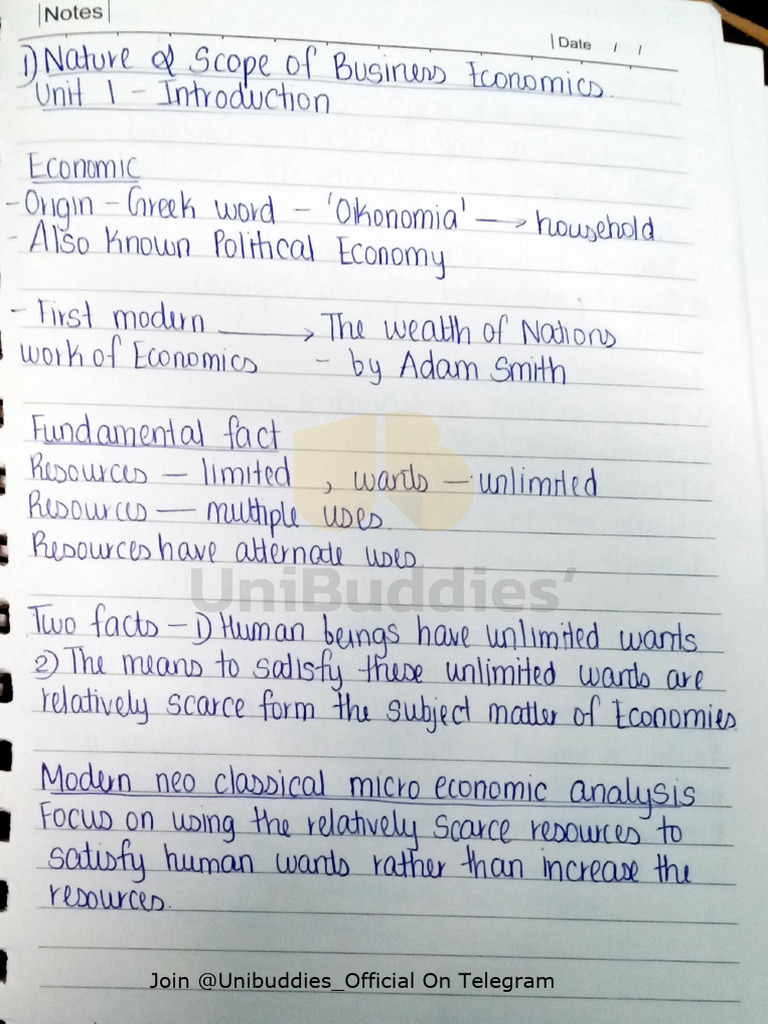 Notes
Date / /
1) Nature & Scope of Business Economics.
Unit 1 - Introduction
Economic
- Origin - Greek word - 'Oikonomia' → household
- Also Known Political Economy
- First modern → The wealth of Nations
work of Economics - by Adam Smith
Fundamental fact
Resources - limited , wants - unlimited
Resources - multiple uses.
Resources have alternate uses.
UniBuddies'
Two facts - 1) Human beings have unlimited wants
2) The means to satisfy these unlimited wants are
relatively scarce form the subject matter of Economies.
Modern neo classical micro economic analysis
Focus on using the relatively scarce resources to
satisfy human wants rather than increase the
resources.
Join @Unibuddies_Official On Telegram